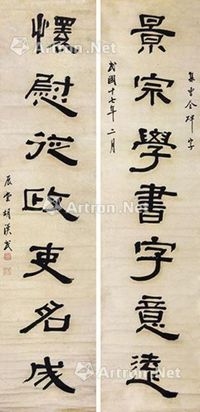 集曹全碑字
景宗學書字意遠
民國十七年二月
懌慰從政吏名成
展堂胡漢民
Artron.Net
Artron.Net
Artron.Net
Artron.Net